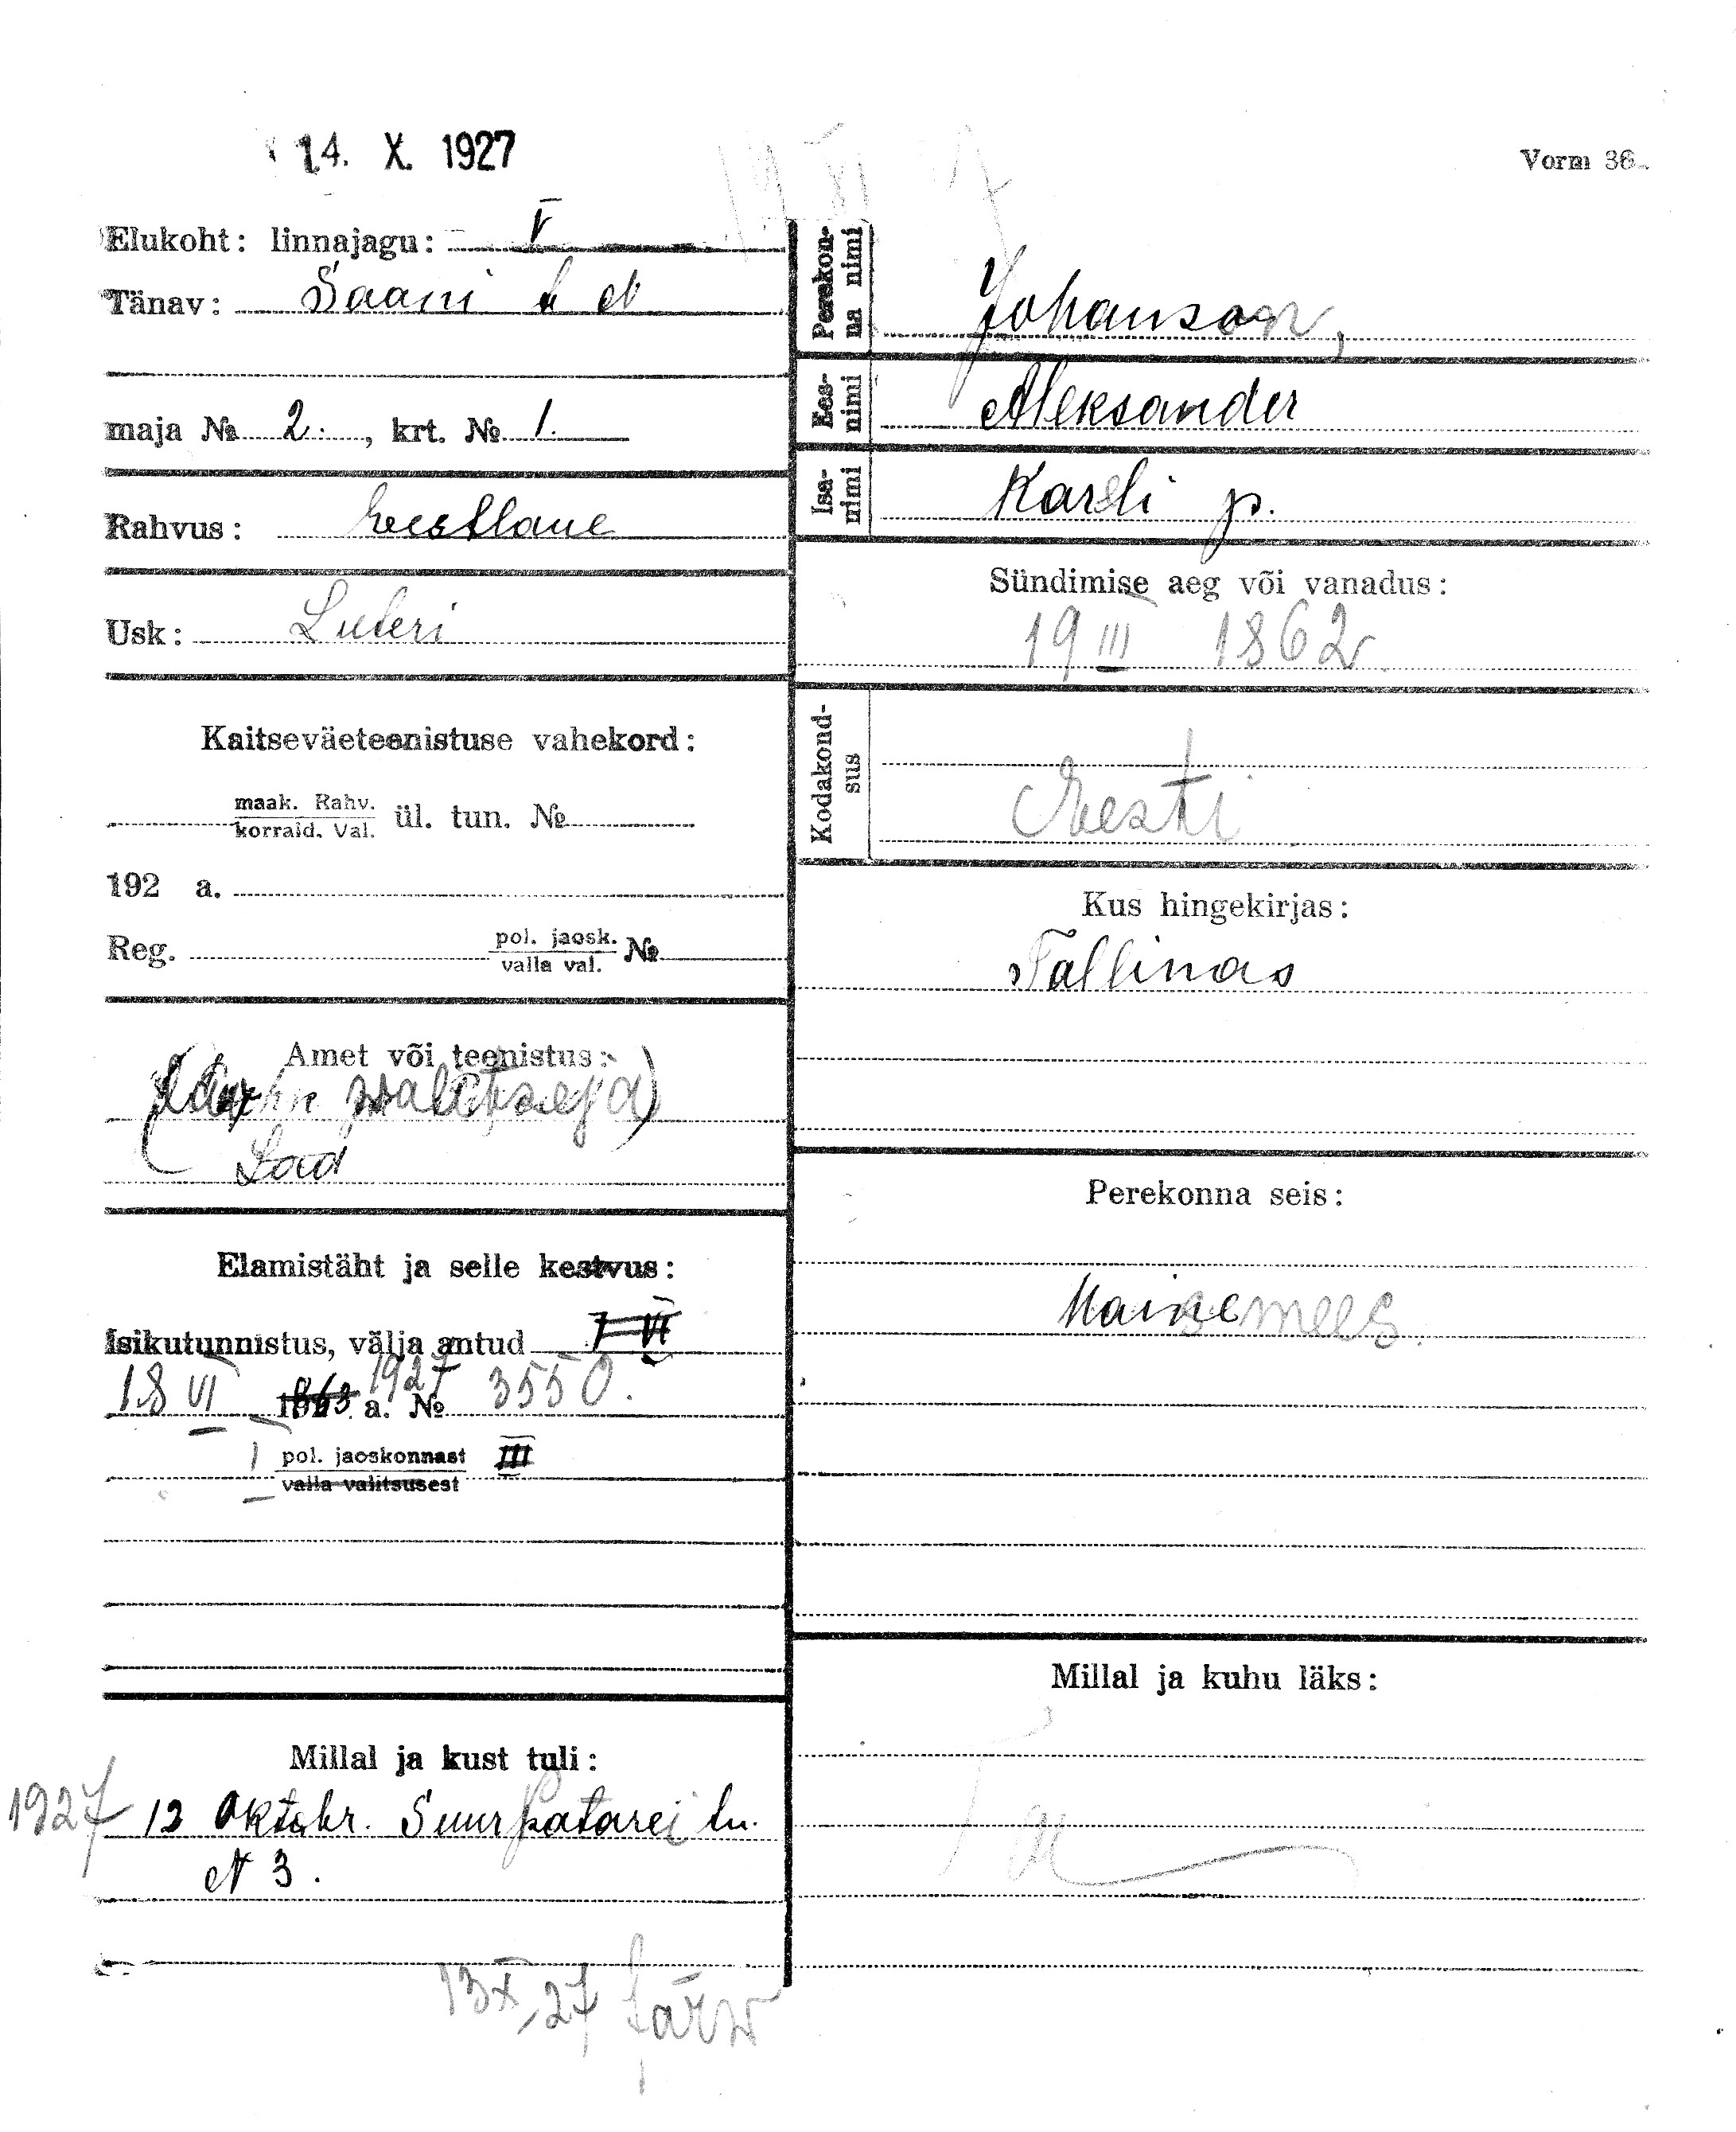 14. X. 1927
Vorm 36.
Elukoht: linnajagu: V
Tänav: Saani t N
maja № 2. , krt. № 1.
Rahvus: Eestlane
Usk: Luteri
Kaitseväeteenistuse vahekord:
maak. Rahv.
korrald. Val. ül. tun. №
192 a.
Reg. pol. jaosk. №
valla val.
Amet või teenistus:
Elamistäht ja selle kestvus:
Isikutunnistus, välja antud 7 VI
18 VI 1863 1927 a. № 3550.
I pol. jaoskonnast III
valla valitsusest
Millal ja kust tuli:
1927 12 Oktobr. Suur Patarei tn.
N 3.
13 X 27
Perekon-
na nimi
Johanson,
Ees-
nimi
Aleksander
Isa-
nimi
Karli p.
Sündimise aeg või vanadus:
19 III 1862
Kodakond-
sus
Eesti
Kus hingekirjas:
Tallinas
Perekonna seis:
Naine mees
Millal ja kuhu läks: